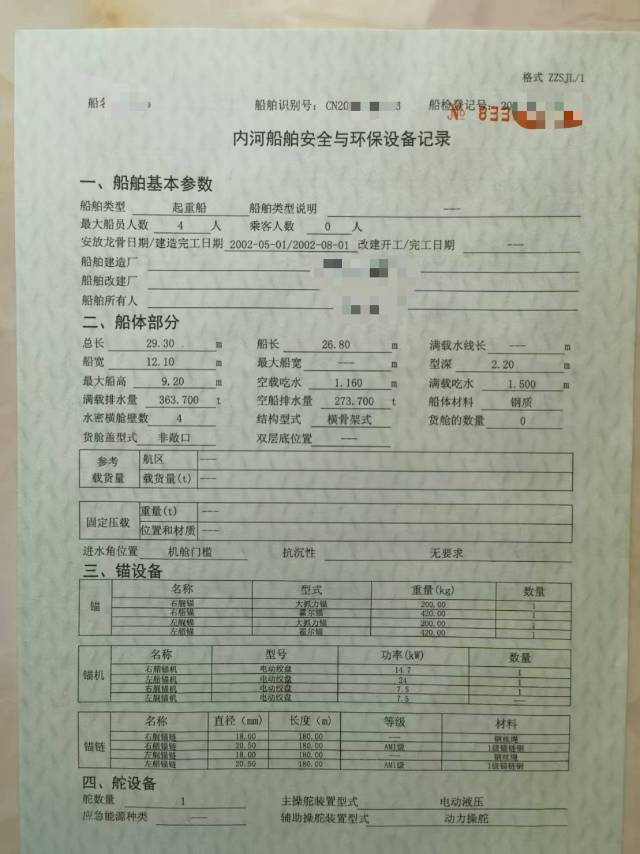 格式 ZZSJL/1
船舶识别号: CN20 3 船检登记号: 20
№ 833
内河船舶安全与环保设备记录
一、船舶基本参数
船舶类型 起重船 船舶类型说明 ---
最大船员人数 4 人 乘客人数 0 人
安放龙骨日期/建造完工日期 2002-05-01/2002-08-01 改建开工/完工日期 ---
船舶建造厂
船舶改建厂
船舶所有人
二、船体部分
总长 29.30 m 船长 26.80 m 满载水线长 --- m
船宽 12.10 m 最大船宽 --- m 型深 2.20 m
最大船高 9.20 m 空载吃水 1.160 m 满载吃水 1.500 m
满载排水量 363.700 t 空船排水量 273.700 t 船体材料 钢质
水密横舱壁数 4 结构型式 横骨架式 货舱的数量 0
货舱盖型式 非敞口 双层底位置 ---
参考载货量 航区 ---
载货量(t) ---
固定压载 重量(t) ---
位置和材质 ---
进水角位置 机舱门槛 抗沉性 无要求
三、锚设备
锚 名称 型式 重量(kg) 数量
右艉锚 大抓力锚 200.00 1
右艏锚 霍尔锚 420.00 1
左艉锚 大抓力锚 200.00 1
左艏锚 霍尔锚 420.00 1
锚机 名称 型号 功率(kW) 数量
右艏锚机 电动绞盘 14.7 1
左艏锚机 电动绞盘 24 1
右艉锚机 电动绞盘 7.5 1
左艉锚机 电动绞盘 7.5 ---
锚链 名称 直径(mm) 长度(m) 等级 材料
右艉锚链 18.00 180.00 钢丝绳
右艏锚链 20.50 180.00 AM1级 1级锚链钢
左艉锚链 18.00 180.00 钢丝绳
左艏锚链 20.50 180.00 AM1级 1级锚链钢
四、舵设备
舵数量 1 主操舵装置型式 电动液压
应急能源种类 --- 辅助操舵装置型式 动力操舵